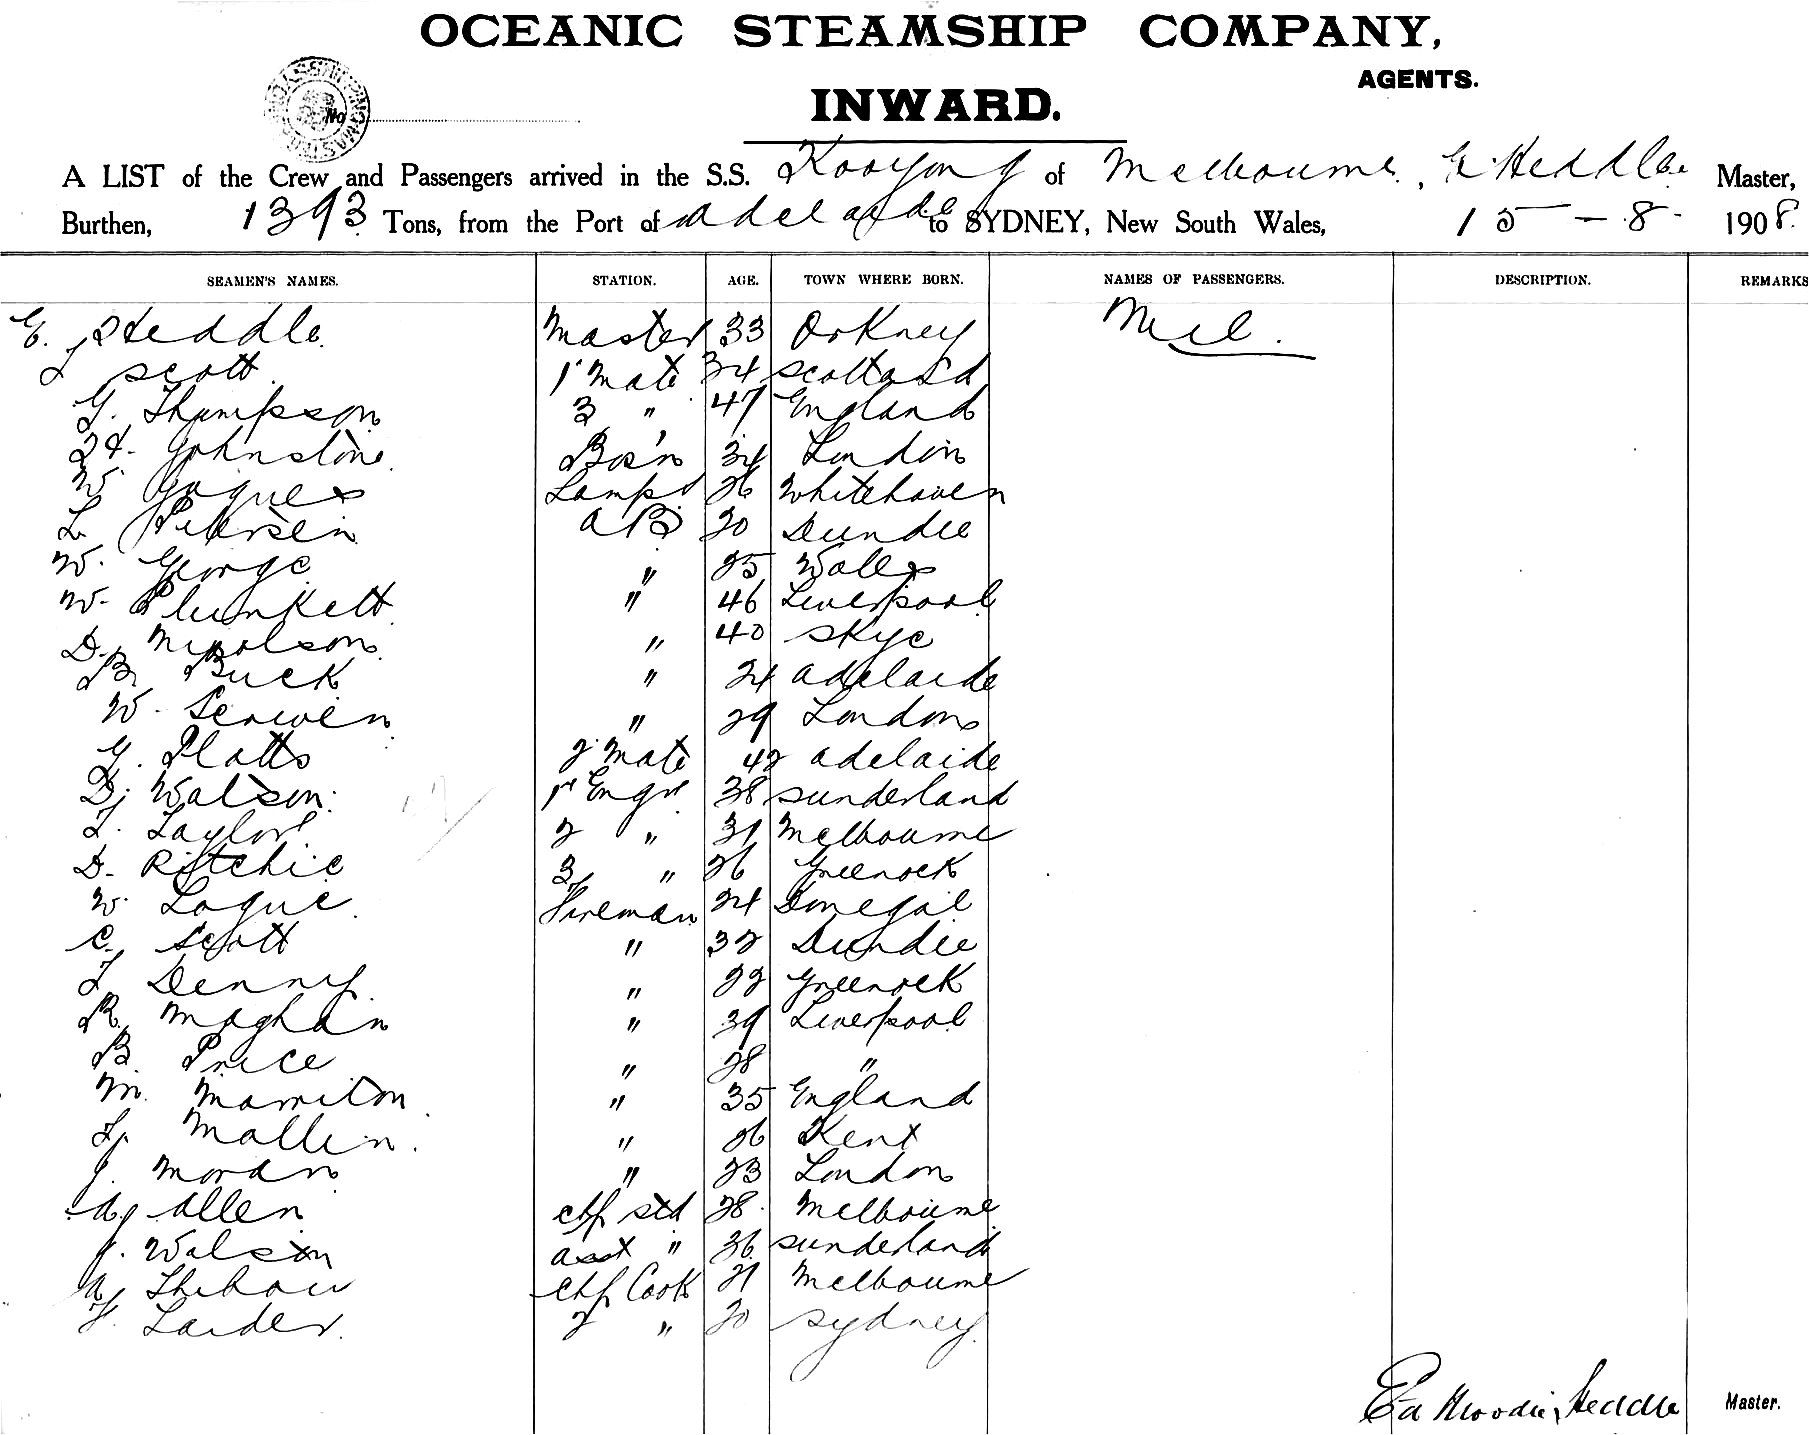 OCEANIC STEAMSHIP COMPANY,
AGENTS.
INWARD.
No
A LIST of the Crew and Passengers arrived in the S.S. Kooyong of Melbourne, E. Heddle Master,
Burthen, 1393 Tons, from the Port of Adelaide to SYDNEY, New South Wales, 15 - 8 - 1908.
SEAMEN'S NAMES. STATION. AGE. TOWN WHERE BORN. NAMES OF PASSENGERS. DESCRIPTION. REMARKS
E. Heddle Master 33 Orkney
Scott 1st Mate 34 Scotland
G. Thompson 3 " 47 England
Johnstone Bos'n 34 London
W. 26 Whitehaven
L. Petersen AB 20 Dundee
W. George " 25 Wales
W. Plunkett " 46 Liverpool
D. Nicolson " 40 Skye
B. Buck " 24 Adelaide
W. " 29 London
G. Platts 2 Mate 42 Adelaide
D. Watson 1st Engr 38 Sunderland
T. Taylor 2 " 31 Melbourne
D. Ritchie 3 " 26 Greenock
W. Logue Fireman 24 Donegal
C. Scott " 32 Dundee
Denny " 22 Greenock
R. Maghan " 39 Liverpool
B. Price " 28 "
M. " 35 England
Mallin " 26 Kent
J. Moran " 23 London
A. Allen chf std 28 Melbourne
J. Watson asst " 36 Sunderland
A. chf Cook 21 Melbourne
Larder 2 " 20 Sydney
Heddle Master.